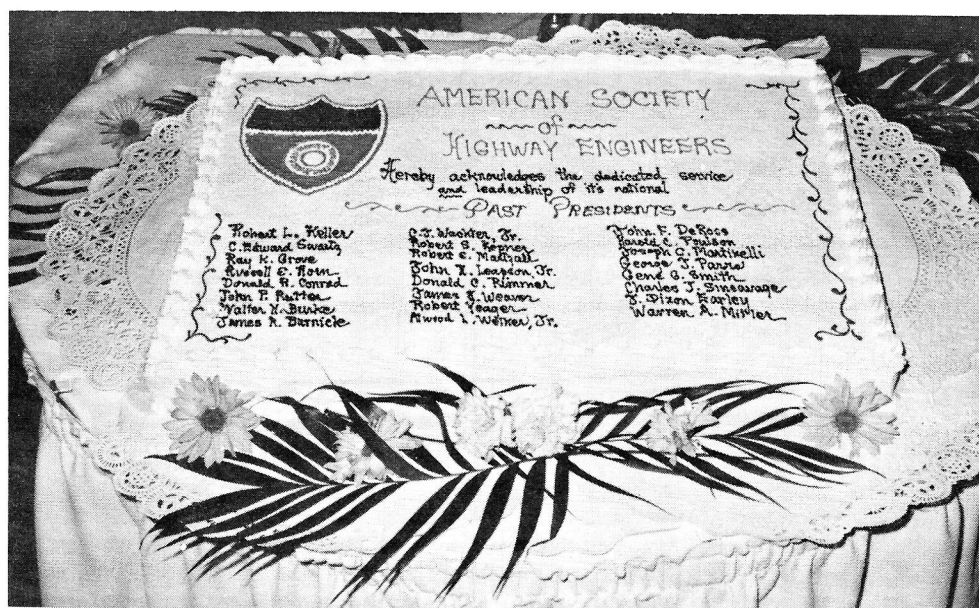 AMERICAN SOCIETY
of
HIGHWAY ENGINEERS
Hereby acknowledges the dedicated service
and leadership of it's national
PAST PRESIDENTS
Robert L. Keller
C. Edward Swartz
Ray K. Grove
Russell E. Horn
Donald R. Conrad
John P. Rutter
Walter H. Burke
James R. Barnick
C.J. Wackter, Jr.
Robert S. Kepner
Robert E.
John H. Jr.
Donald C. Rimmer
James J. Weaver
Robert Yeager
Atwood L. Welker, Jr.
John F. DeRoco
Harold C. Poulson
Joseph C. Martinelli
George J. Parvis
Gene G. Smith
Charles J. Sinsavage
J. Dixon Earley
Warren A. Mitler